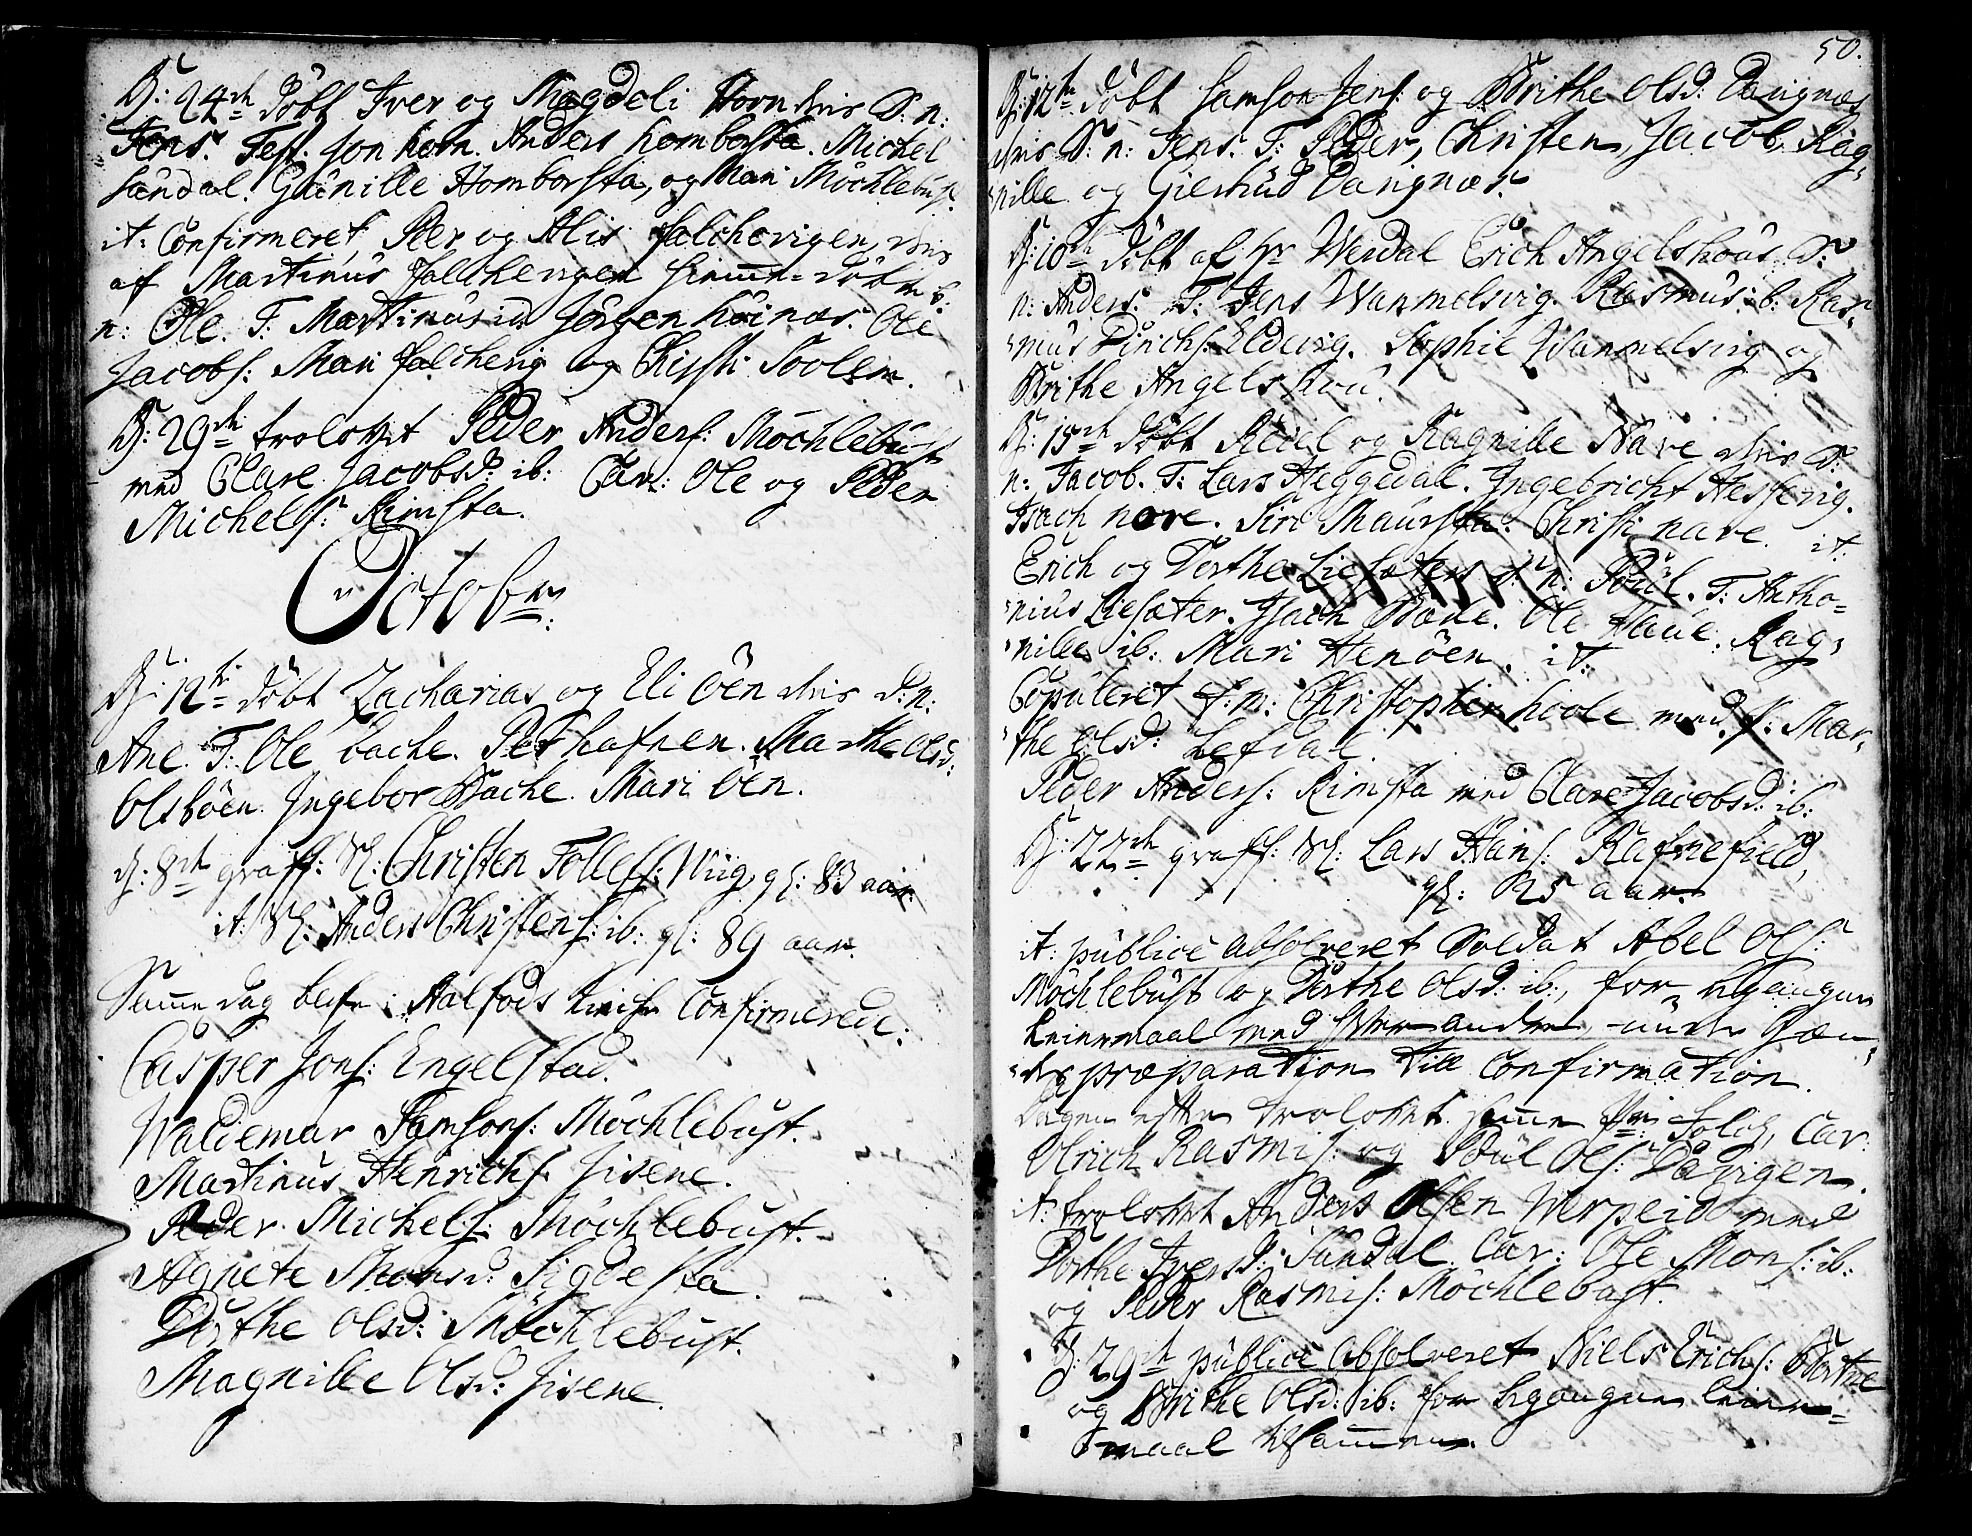 D: 24de döbt Iver og Magdeli Horn dris S. n:
Jens. Test. Jon horn. Anders homborsta. Michel
Sandal. Gunille Homborsta, og Mari Möchlebust.
it: Confirmeret Peer og Alis falchevigen dris
af Martinus falchevigen hiemme-döbte b.
n: Ole. T: Martinus ib. Jörgen höinæs. Ole
Jacobs: Mari falchevig og Christi Toolem.
D: 29de trolovet Peder Anders: Möchlebust
med Clare Jacobsd: ib: Cav: Ole og Peder
Michels: Rimsta.
Octobr:
D: 12te döbt Zacharias og Eli öen dris d. n:
Ane. T: Ole bache. Peer hafnen. Marthe Olsd:
Olsböen. Ingebor Bache. Mari Öen.
D: 8de graff: Sl: Christen Tollefs: Wiig, gl: 83 aar.
it: Sl: Anders Christens: ib: gl: 89 aar.
Samme dag blefve i Aalfods kirche Confirmerede:
Casper Jons: Engelstad.
Waldemar Samsons: Möchlebust.
Martinus Henrichs: Hisene.
Peder Michels: Möchlebust.
Agnete Monsd: Sigdesta.
Dorthe Olsd: Möchlebust.
Magnille Olsd: Hisene.
50.
D: 12te döbt Samson Jens: og Brithe Olsd: Davignæs
dris S: n: Jens. T: Peder, Christen, Jacob, Rag-
nille og Giertrud Davignæs.
D: 10de döbt af Hr Werdal Erich Angelskous S:
n: Anders. T: Jens Wammelsvig. Rasmus ib. Ras-
mus Dinchs: Eldevig. Sophie Wammelsvig og
Brithe Angelskou.
D: 15de döbt Reiel og Ragnille Nave dris S:
n: Jacob. T: Lars Heggedal. Ingebricht Hessevig.
Isach nave. Siri Maursta. Christi nave. it:
Erich og Dorthe Liesæters S: n: Poul. T: Antho-
nius Liesæter. Isach Bode. Ole Haue. Rag-
nille ib: Mari Henöen. it:
Copuleret S: m: Christopher hoole med P: Mar-
the Olsd: Lefdal.
Peder Anders: Rimsta med Clare Jacobsd: ib:
D: 22de graff: Sl: Lars Hans: Rafnefield,
gl: 25 aar.
it: publice absolveret Soldat Abel Ols:
Möchlebust og Dorthe Olsd: ib:, for begangen
Leiermaal med hver andre, under
præparation till Confirmation.
Dagen efter trolovet samme Folch, Cav:
Ulrich Rasmis: og Poul Ols: Davigen.
it: trolovet Anders Olsen Werpeid med
Dorthe Iversd: Sandal. Cav: Ole Mons: ib:
og Peder Rasmis: Möchlebust.
D: 29de publice absolveret Niels Erichs: Bortne
og Brithe Olsd: ib: for begangen leier-
maal tilsammen.